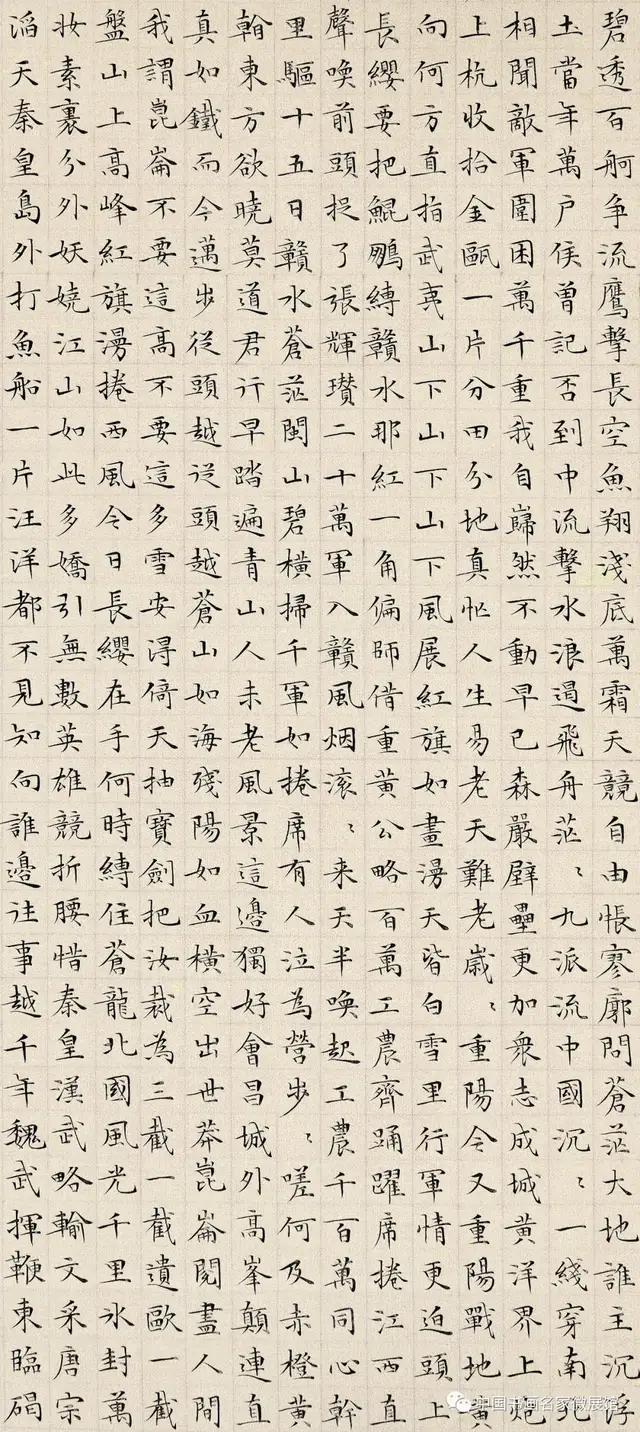 碧透百舸争流鷹擊長空魚翔淺底萬霜天競自由悵寥廓問蒼茫大地誰主沉浮
土當年萬戶侯曾記否到中流擊水浪遏飛舟茫〻九派流中國沉〻一綫穿南北
相聞敵軍圍困萬千重我自巋然不動早已森嚴壁壘更加衆志成城黃洋界上炮
上杭收拾金甌一片分田分地真忙人生易老天難老歲〻重陽今又重陽戰地黃
向何方直指武夷山下山下山下風展紅旗如畫漫天皆白雪里行軍情更迫頭上
長纓要把鯤鵬縛贛水那紅一角偏師借重黃公略百萬工農齊踴躍席捲江西直
聲喚前頭捉了張輝瓚二十萬軍入贛風烟滾〻来天半喚起工農千百萬同心幹
里驅十五日贛水蒼茫閩山碧橫掃千軍如捲席有人泣為營步〻嗟何及赤橙黃
翰東方欲曉莫道君行早踏遍青山人未老風景這邊獨好會昌城外高峯顛連直
真如鐵而今邁步從頭越從頭越蒼山如海殘陽如血橫空出世莽崑崙閱盡人間
我謂崑崙不要這高不要這多雪安得倚天抽寶劍把汝裁為三截一截遺歐一截
盤山上高峰紅旗漫捲西風今日長纓在手何時縛住蒼龍北國風光千里冰封萬
妝素裹分外妖嬈江山如此多嬌引無數英雄競折腰惜秦皇漢武略輸文采唐宗
滔天秦皇島外打魚船一片汪洋都不見知向誰邊往事越千年魏武揮鞭東臨碣
中国书画名家微展馆